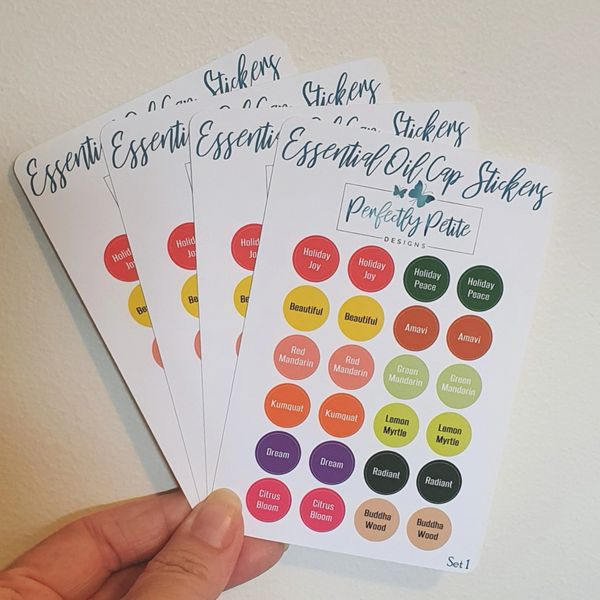 Essential Oil Cap Stickers
Essential Oil Cap Stickers
Essential Oil Cap Stickers
Essential Oil Cap Stickers
Perfectly Petite
DESIGNS
Holiday
Joy
Holiday
Joy
Holiday
Peace
Holiday
Peace
Beautiful
Beautiful
Amavi
Amavi
Red
Mandarin
Red
Mandarin
Green
Mandarin
Green
Mandarin
Kumquat
Kumquat
Lemon
Myrtle
Lemon
Myrtle
Dream
Dream
Radiant
Radiant
Citrus
Bloom
Citrus
Bloom
Buddha
Wood
Buddha
Wood
Set 1